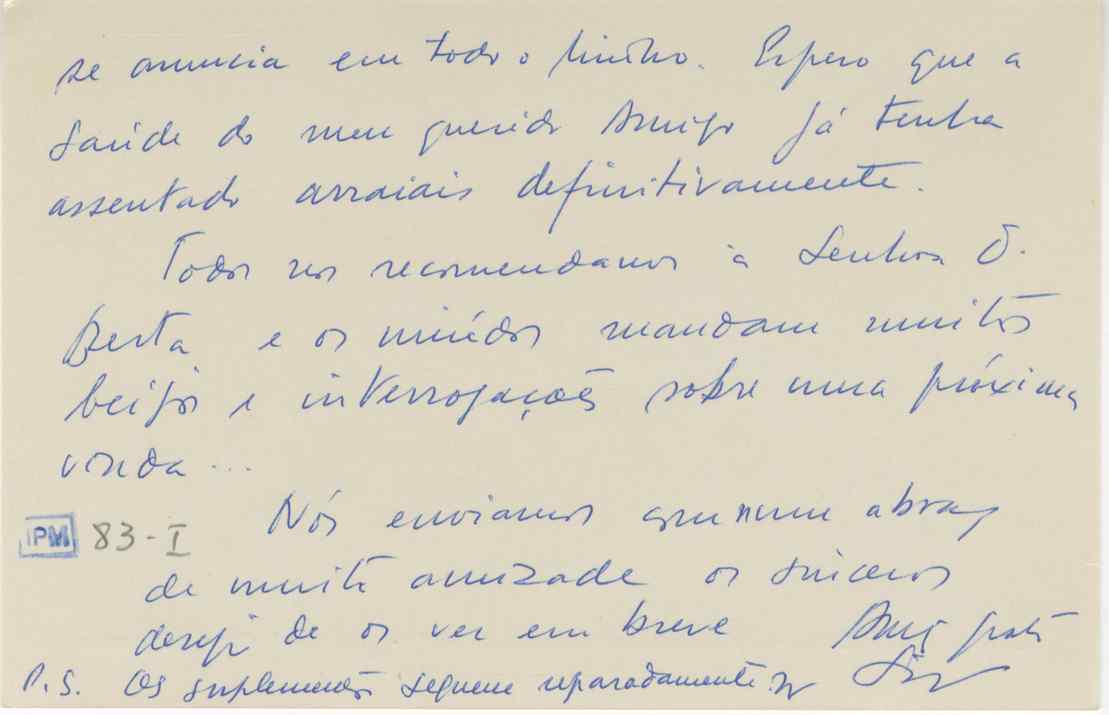 se anuncia em todo o Minho. Espero que a
saúde do meu querido Amigo já tenha
assentado arraiais definitivamente.
Todos nos recomendamos à Senhora D.
Berta e os miúdos mandam muitos
beijos e interrogações sobre uma próxima
vinda...
Nós enviamos com um abraço
de muita amizade os sinceros
desejos de os ver em breve
Amº grato
P.S. Os suplementos seguem separadamente.
IPM 83-I